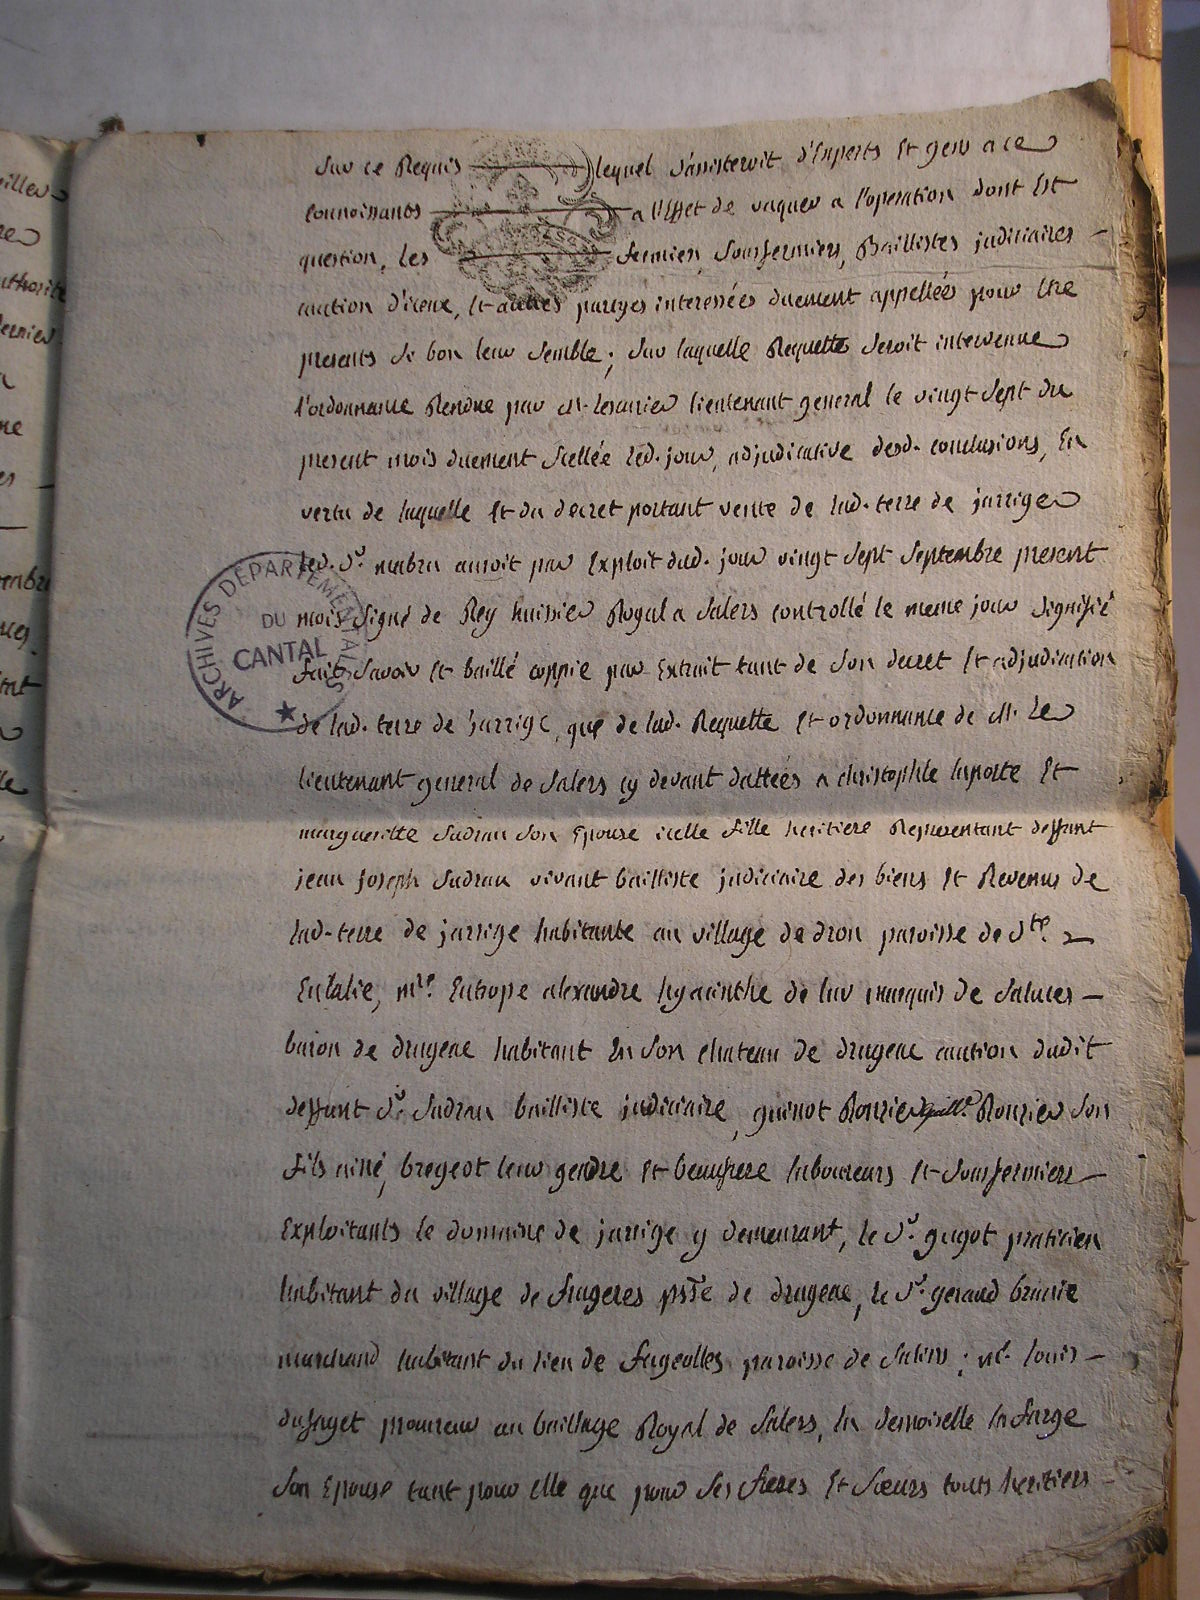 Sur ce Requis lequel s'assisteroit d'Experts Et gens a ce
Connoissants a l'Effet de vaquer a l'operation dont Est
question, Les fermiers, Sousfermiers, Baillistes judiciaires
caution d'iceux, Et autres partyes interessées duement appellées pour Etre
presents Si bon leur Semble; Sur laquelle Requette Seroit intervenue
l'ordonnance Rendue par M. lieutenant general le vingt Sept du
present mois duement Scellée led. jour, adjudicative desd. conclusions, En
vertu de laquelle Et du decret portant vente de lad. terre de jarrige
led. Sr. auroit par Exploit dud. jour vingt Sept Septembre present
mois Signé de Rey huissier Royal a Salers controllé le meme jour Signifié
fait Savoir Et baillé coppie par Extrait tant de Son decret Et adjudication
de lad. terre de jarrige, que de lad. Requette Et ordonnance de M. Le
lieutenant general de Salers cy devant dattées a christophle laporte Et
margueritte Sudrau Son Epouse icelle fille heritiere Representant deffunt
jean joseph Sudrau vivant bailliste judiciaire des biens Et Revenus de
lad. terre de jarrige habitante au village de dron paroisse de Ste.
Eulalie, mre. Eutrope alexandre hyacinthe de lur marquis de Saluces
baron de drugeac habitant En Son chateau de drugeac caution dudit
deffunt Sr. Sudrau bailliste judiciaire, guinot Ronzier Ronzier Son
fils ainé, bregeot leur gendre Et beaufrere laboureurs Et Sousfermiers
Exploitants le domaine de jarrige y demeurant, le Sr. gugot praticien
habitant du village de frageres psse de drugeac, le Sr. geraud
marchand habitant du lieu de fageolles paroisse de Salers; Me. louis
dufayet procureur au bailliage Royal de Salers, la demoiselle lafarge
Son Epouse tant pour Elle que pour Ses freres Et Sœurs touts heritiers
ARCHIVES DÉPARTEMENTALES
DU
CANTAL